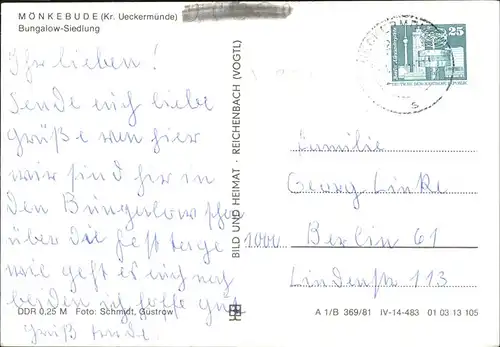 MÖNKEBUDE (Kr. Ueckermünde)
Bungalow-Siedlung
Ihr lieben!
Sende euch liebe
Grüße von hier
wir sind hir in
den Bungerlow schon
über die Festtage
wie geht es euch noch
beiden ich hoffe gut
Gruß
DDR 0,25 M Foto: Schmidt, Güstrow
BILD UND HEIMAT · REICHENBACH (VOGTL)
25
Familie
Georg Linke
1000 Berlin 61
Lindenstr 113
A 1/B 369/81 IV-14-483 01 03 13 105